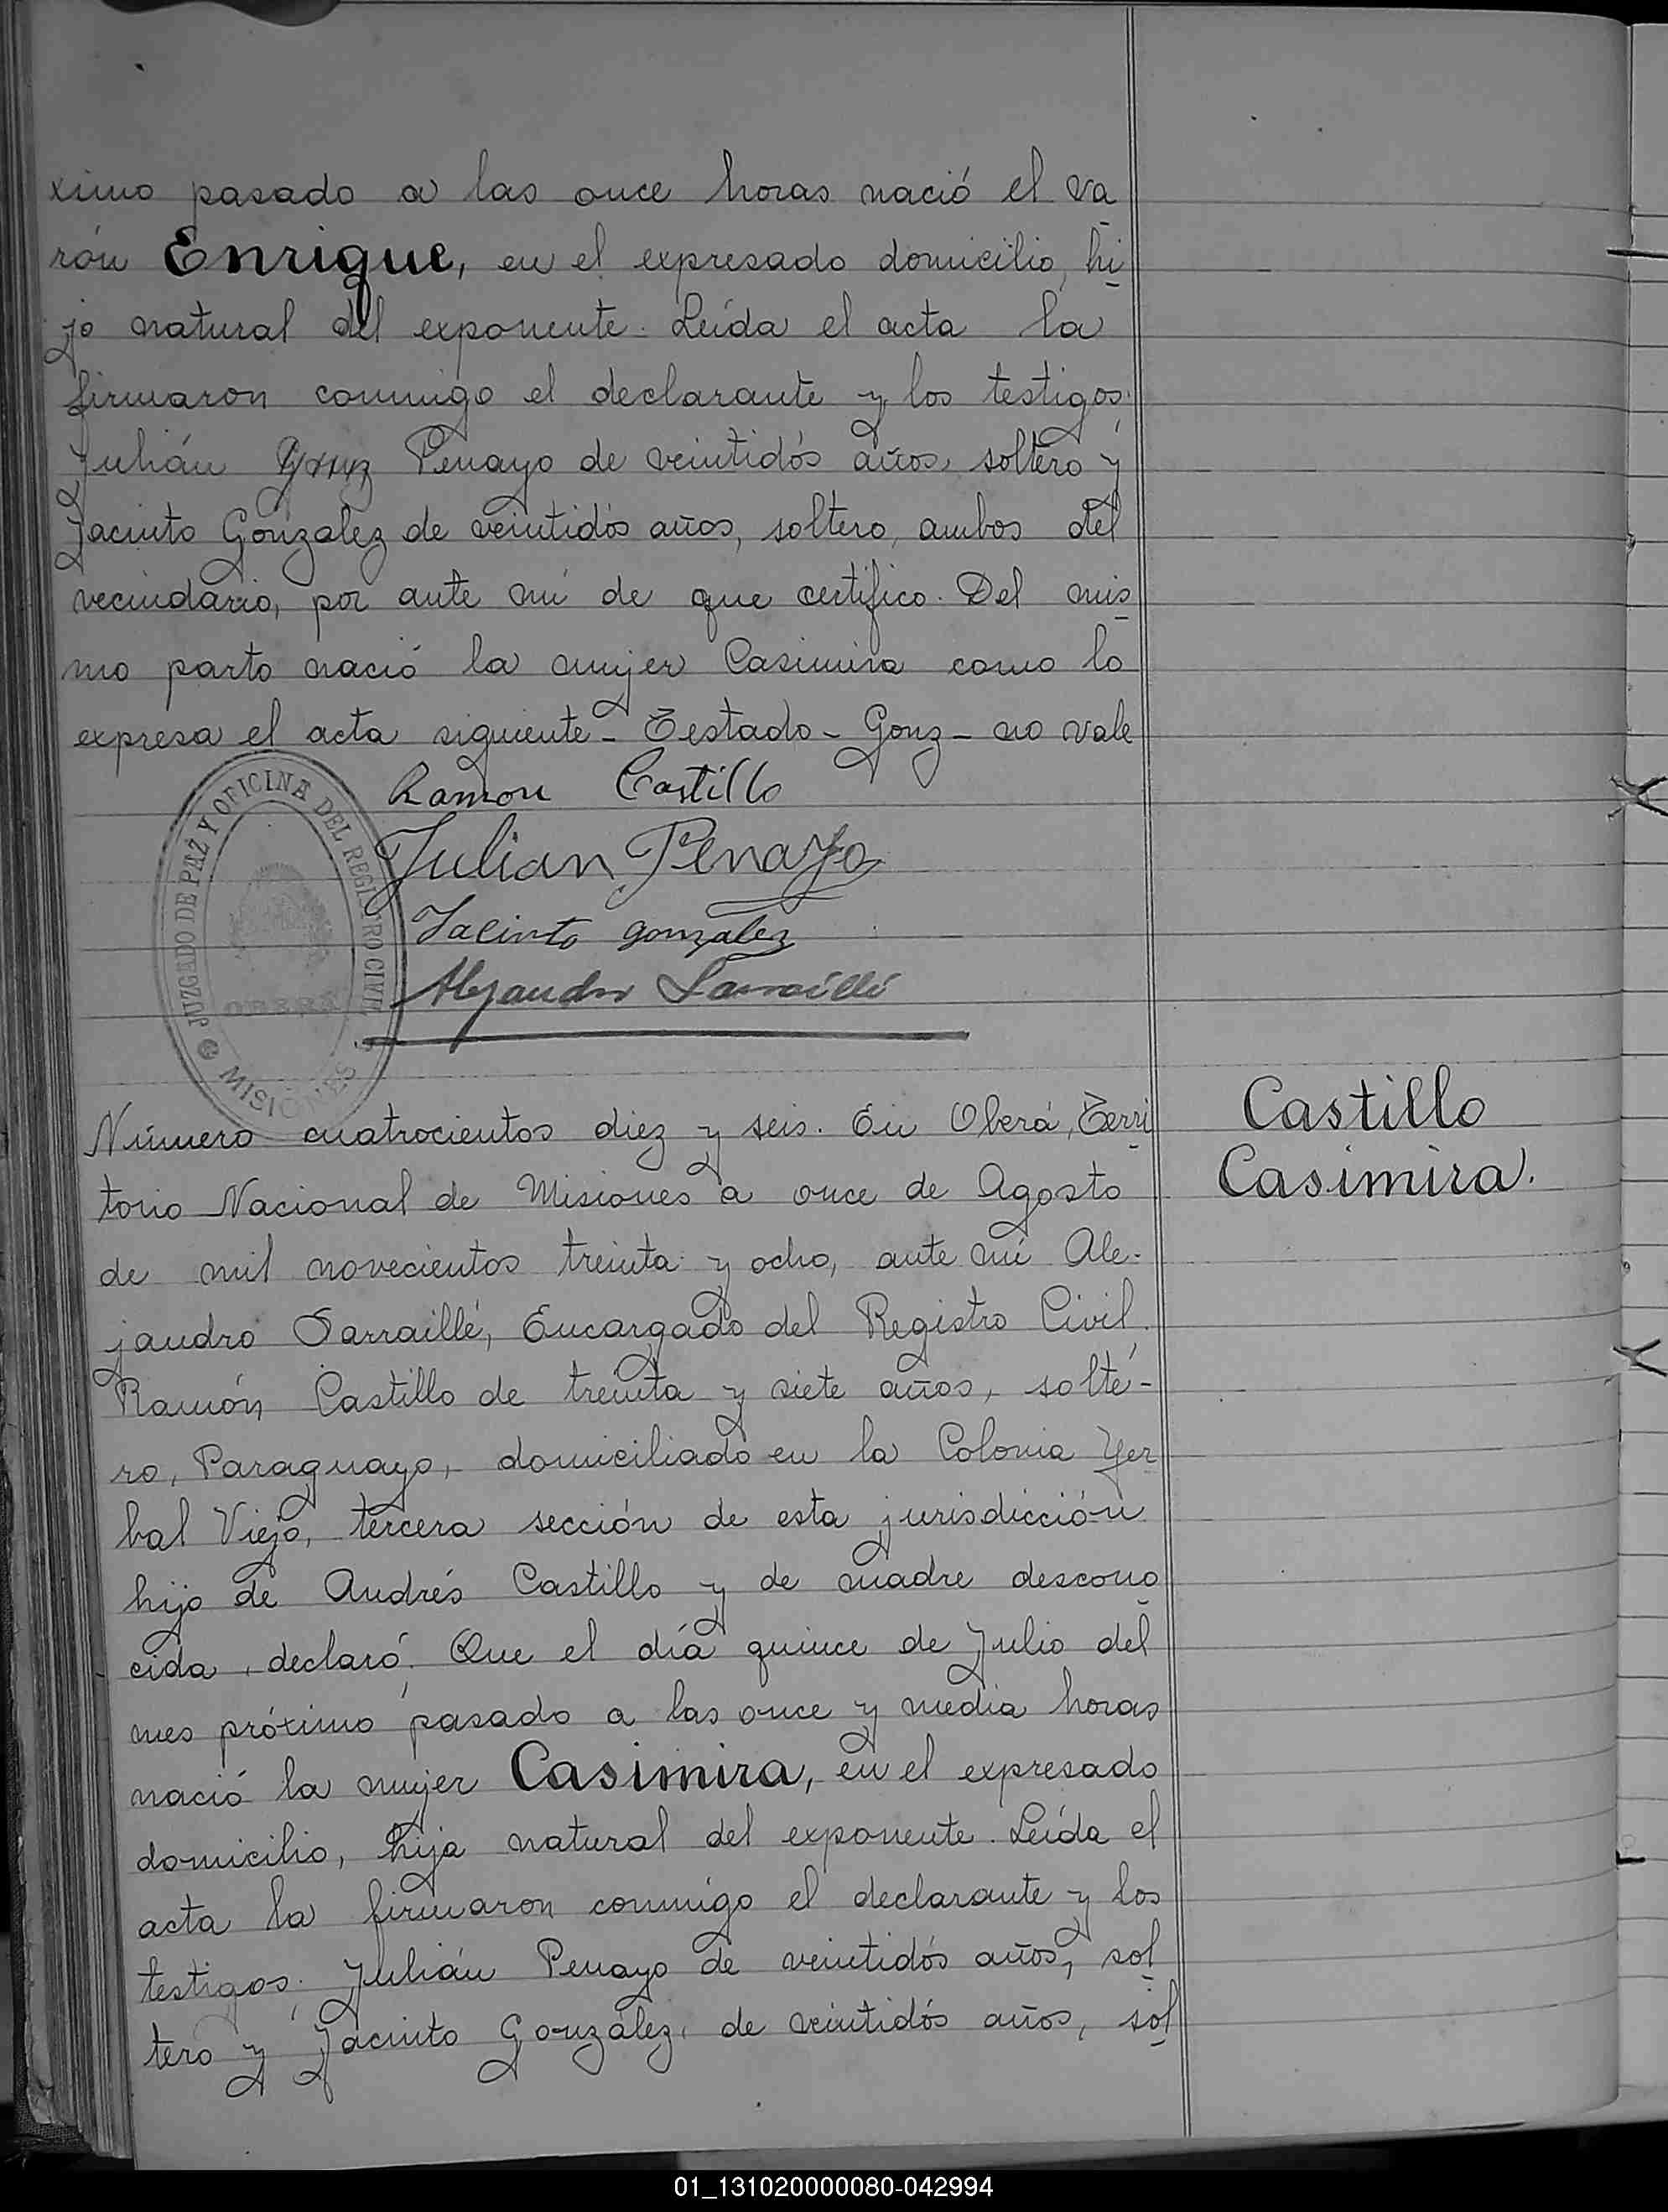 ximo pasado a las once horas nació el va
rón Enrique, en el expresado domicilio, hi
jo natural del exponente. Leída el acta la
firmaron conmigo el declarante y los testigos:
Julián Gonz Penayo de veintidós años, soltero y
Jacinto González de veintidós años, soltero, ambos del
vecindario, por ante mí de que certifico. Del mis
mo parto nació la mujer Casimira como lo
expresa el acta siguiente - Testado - Gonz - no vale
Ramon Castillo
Julian Penayo
Jacinto gonzalez
Alejandro Sarraillé
JUZGADO DE PAZ Y OFICINA DEL REGISTRO CIVIL
OBERÁ
MISIONES
Castillo
Casimira.
Número cuatrocientos diez y seis. En Oberá, Terri
torio Nacional de Misiones a once de Agosto
de mil novecientos treinta y ocho, ante mí Ale-
jandro Sarraillé, Encargado del Registro Civil.
Ramón Castillo de treinta y siete años, solte-
ro, Paraguayo, domiciliado en la Colonia Yer
bal Viejo, tercera sección de esta jurisdicción
hijo de Andrés Castillo y de madre descono
cida, declaró: Que el día quince de Julio del
mes próximo pasado a las once y media horas
nació la mujer Casimira, en el expresado
domicilio, hija natural del exponente. Leída el
acta la firmaron conmigo el declarante y los
testigos: Julián Penayo de veintidós años, sol
tero y Jacinto González, de veintidós años, sol
01_131020000080-042994